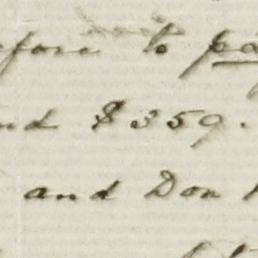 before to pa
nd $359.
and Don